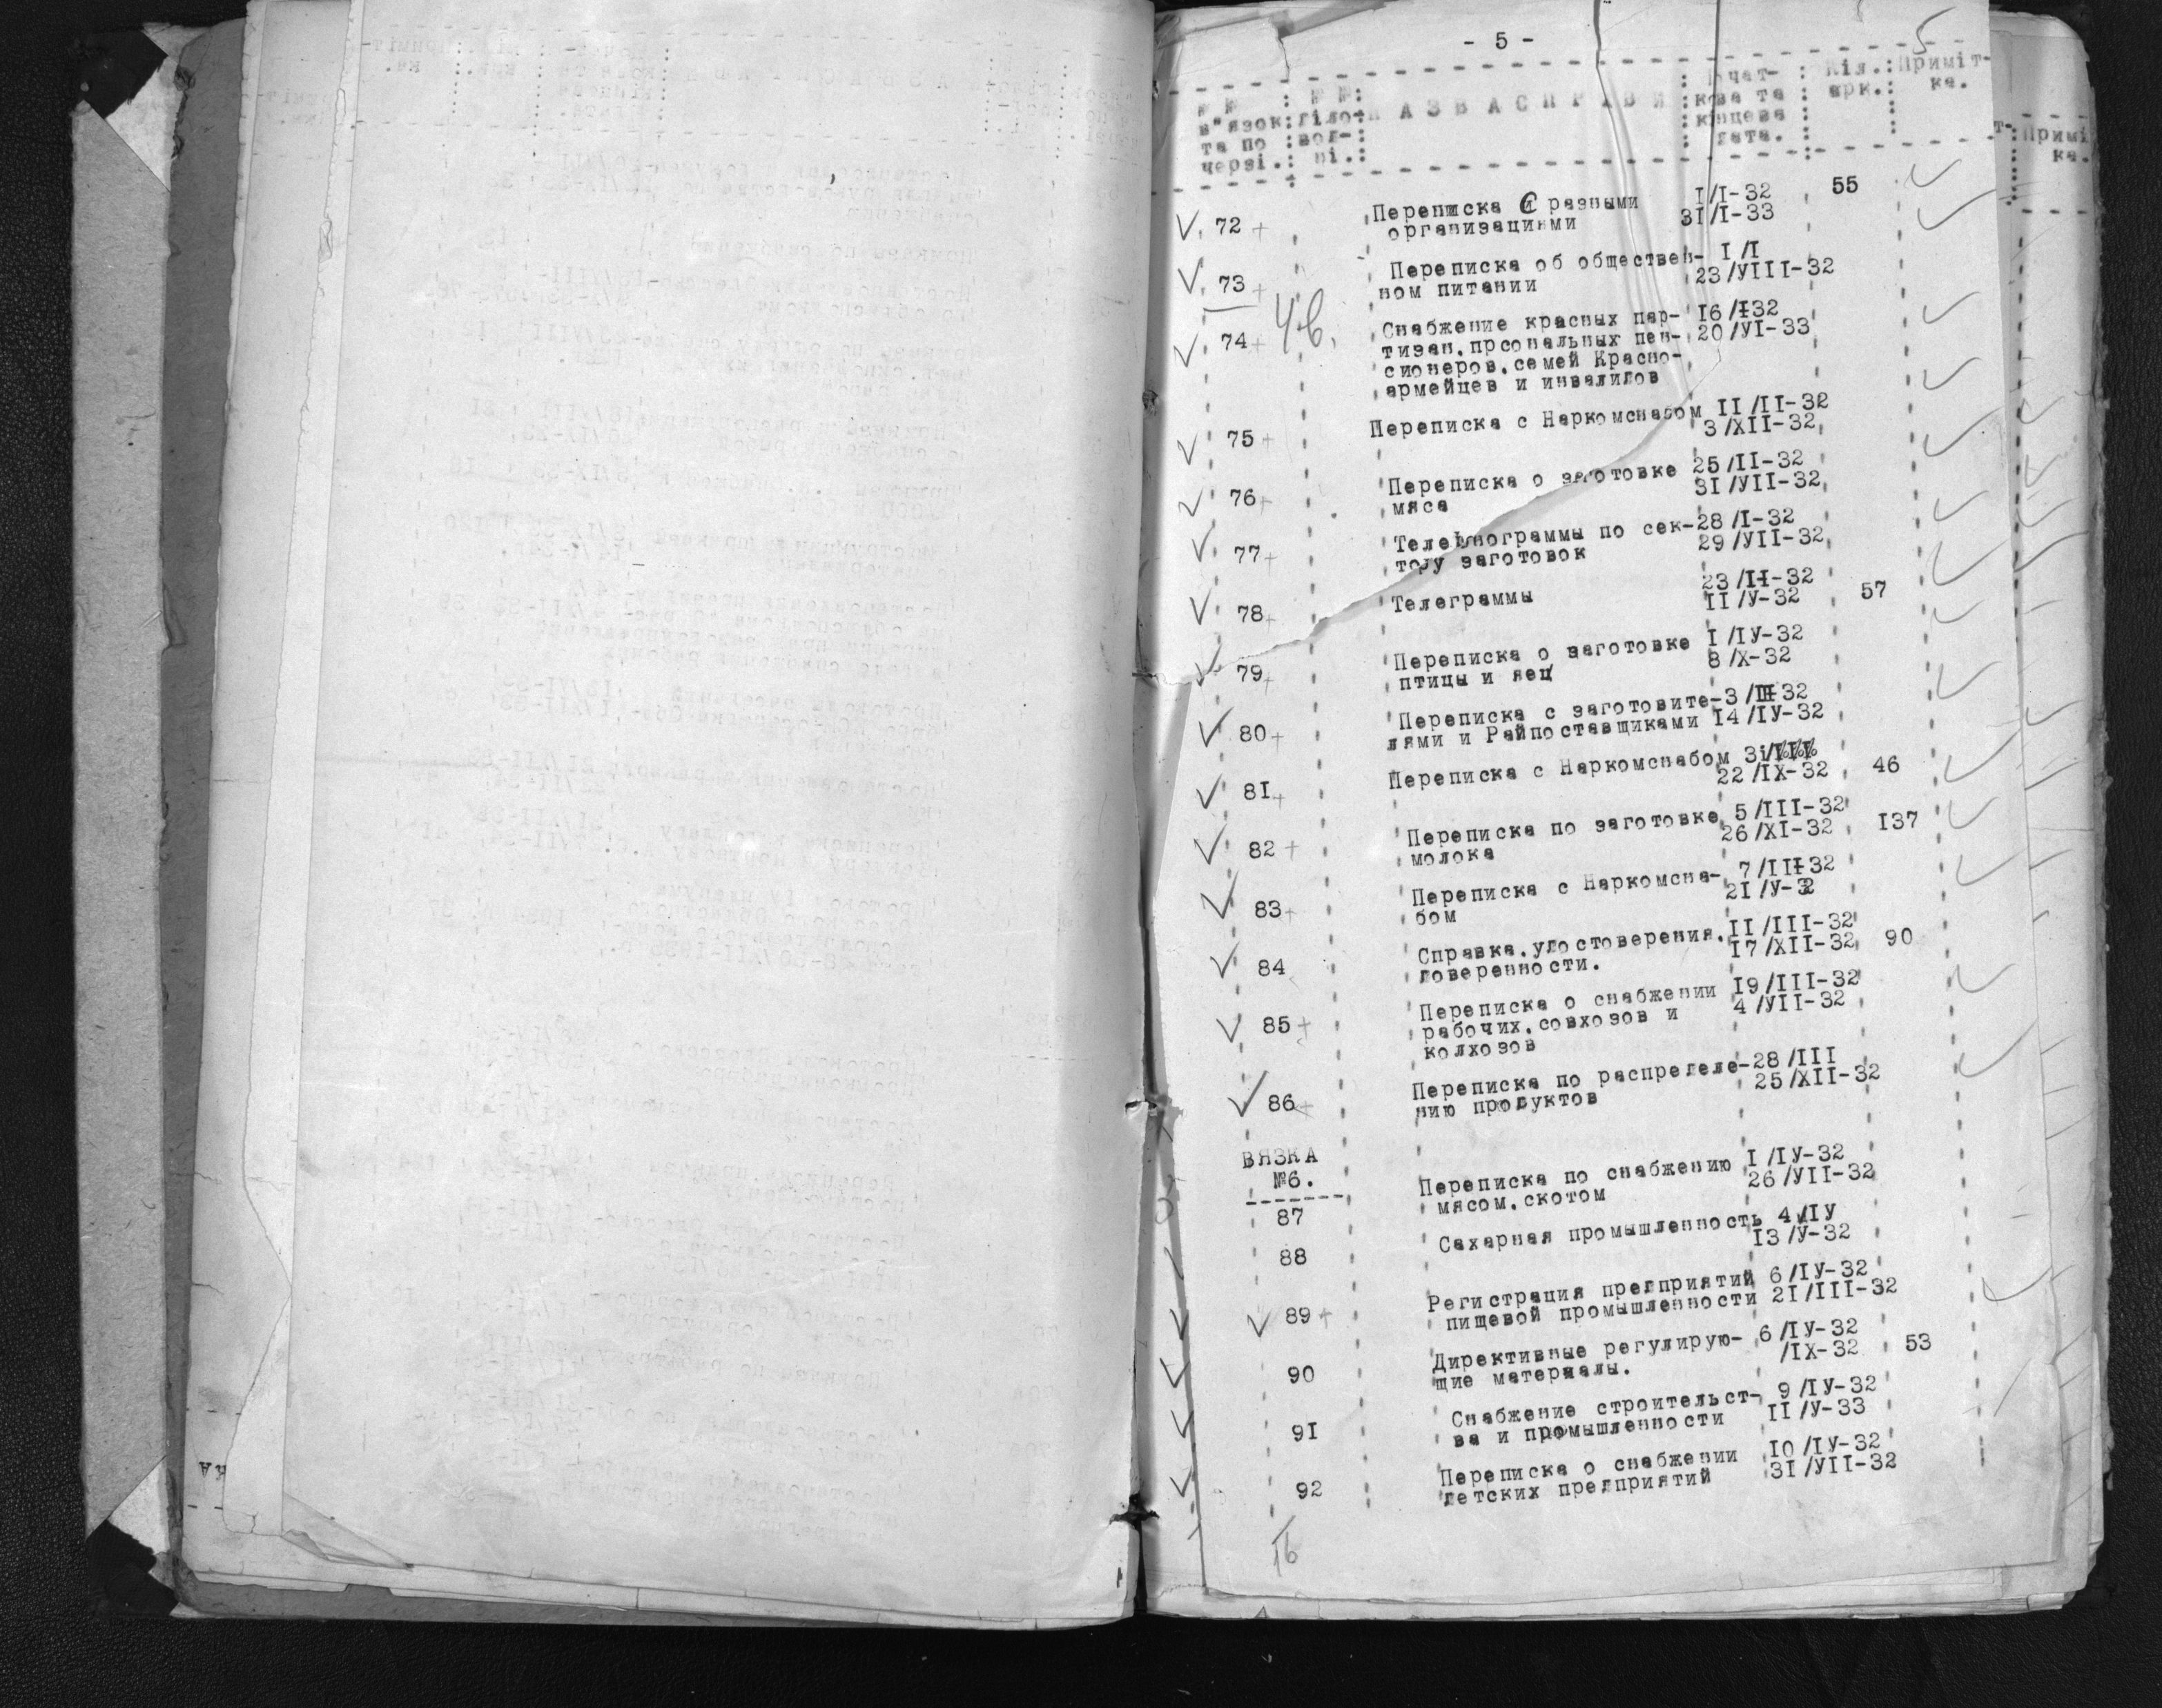 - 5 -
5
№№ в"язок та по черзі. : №№ діло- вод- ні. : НАЗВА СПРАВИ : Почат- кова та кінцева дата. : Кіл. арк. : Приміт- ка.
Примі
ка.
72 Переписка с разными I/I-32 55
организациями 3I/I-33
73 Переписка об обществен- I/I
ном питании 23/УIII-32
74 Снабжение красных пар- I6/I32
тизан, прсональных пен- 20/УI-33
сионеров, семей Красно-
армейцев и инвалидов
75 Переписка с Наркомснабом II/II-32
3/XII-32
76 Переписка о заготовке 25/II-32
мяса 3I/УII-32
77 Телефонограммы по сек- 28/I-32
тору заготовок 29/УII-32
78 Телеграммы 23/II-32
II/У-32 57
79 Переписка о заготовке I/IУ-32
птицы и яец 8/X-32
80 Переписка с заготовите- 3/III32
лями и Райпоставщиками I4/IУ-32
81 Переписка с Наркомснабом 3i/III
22/IX-32 46
82 Переписка по заготовке 5/III-32
молока 26/XI-32 I37
83 Переписка с Наркомсна- 7/III32
бом 2I/У-32
84 Справка, удостоверения, II/III-32
доверенности. I7/XII-32 90
85 Переписка о снабжении I9/III-32
рабочих, совхозов и 4/УII-32
колхозов
86 Переписка по распределе- 28/III
нию продуктов 25/XII-32
ВЯЗКА
№6.
87 Переписка по снабжению I/IУ-32
мясом, скотом 26/УII-32
88 Сахарная промышленность 4/IУ
I3/У-32
89 Регистрация предприятий 6/IУ-32
пищевой промышленности 2I/III-32
90 Директивные регулирую- 6/IУ-32
щие материалы. /IX-32 53
91 Снабжение строительст- 9/IУ-32
ва и промышленности II/У-33
92 Переписка о снабжении I0/IУ-32
детских предприятий 3I/УII-32
16